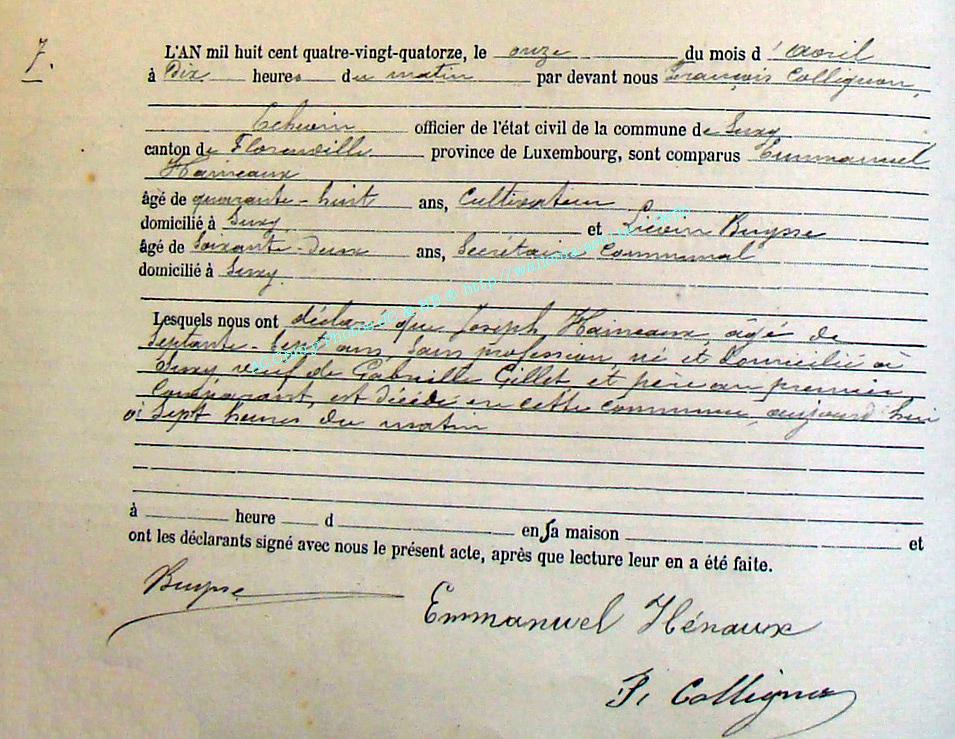 7.
L'AN mil huit cent quatre-vingt-quatorze, le onze du mois d'avril
à Dix heures du matin par devant nous François Collignon,
Echevin officier de l'état civil de la commune de Suxy
canton de Florenville province de Luxembourg, sont comparus Emmanuel
Haineaux
âgé de quarante-huit ans, Cultivateur
domicilié à Suxy et Liévin Buysse
âgé de Soixante-deux ans, Secrétaire Communal
domicilié à Suxy
Lesquels nous ont déclaré que Joseph Haineaux, âgé de
Septante-sept ans, sans profession, né et domicilié à
Suxy veuf de Gabrielle Gillet, et père au premier
Comparant, est décédé en cette commune, aujourd'hui
à Sept heures du matin
à heure d en sa maison et
ont les déclarants signé avec nous le présent acte, après que lecture leur en a été faite.
Buysse
Emmanuel Hénaux
F. Collignon